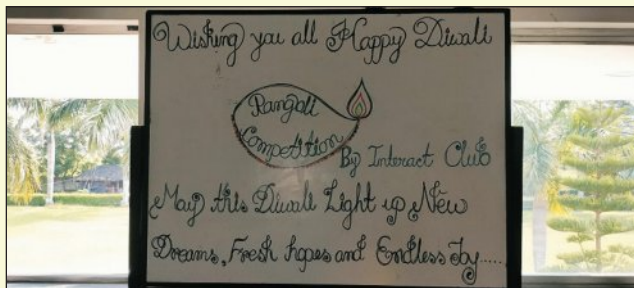 Wishing you all Happy Diwali
Rangoli
Competition
By Interact Club
May this Diwali Light up New
Dreams, Fresh hopes and Endless Joy......